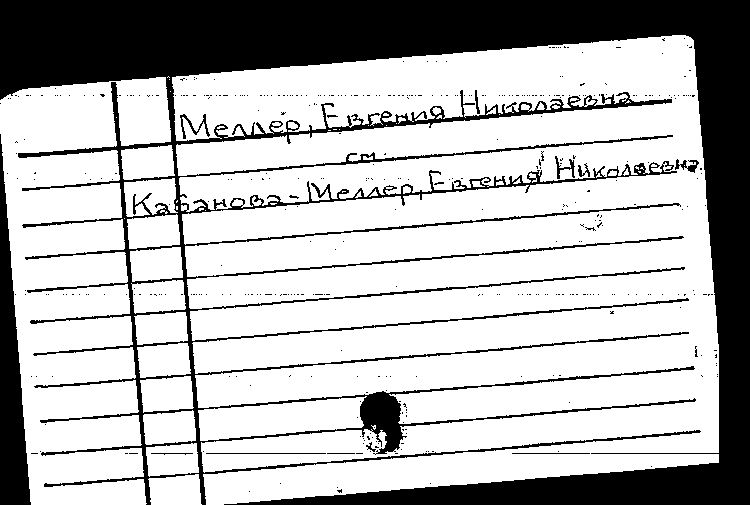 Меллер, Евгения Николаевна
см.
Кабанова-Меллер, Евгения Николаевна